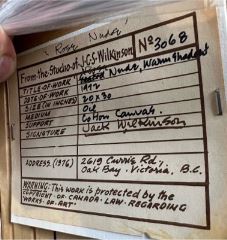 "Rose Nude"
From-the-Studio-of J·C·S·Wilkinson Nº 3068
TITLE·OF·WORK Seated Nude, Warm
DATE·OF·WORK 1972
SIZE (IN INCHES) 20x30
MEDIUM Oil
SUPPORT Cotton Canvas
SIGNATURE Jack Wilkinson
ADDRESS (1976) 2619 Currie Rd.,
Oak Bay. Victoria, B.C.
WARNING: THIS WORK IS PROTECTED BY THE
COPYRIGHT-OF-CANADA-LAW-REGARDING
'WORKS OF ART'